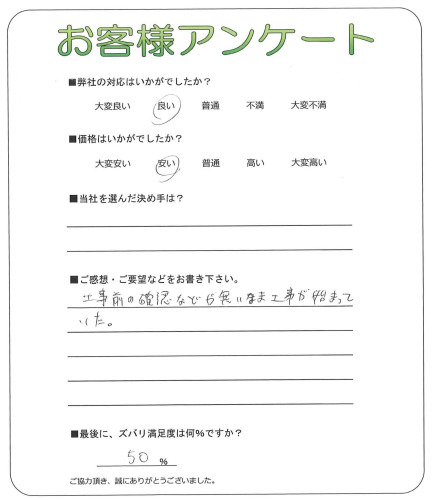 お客様アンケート
■弊社の対応はいかがでしたか？
大変良い 良い 普通 不満 大変不満
■価格はいかがでしたか？
大変安い 安い 普通 高い 大変高い
■当社を選んだ決め手は？
■ご感想・ご要望などをお書き下さい。
工事前の確認などが無いまま工事が始まって
いた。
■最後に、ズバリ満足度は何％ですか？
50 ％
ご協力頂き、誠にありがとうございました。